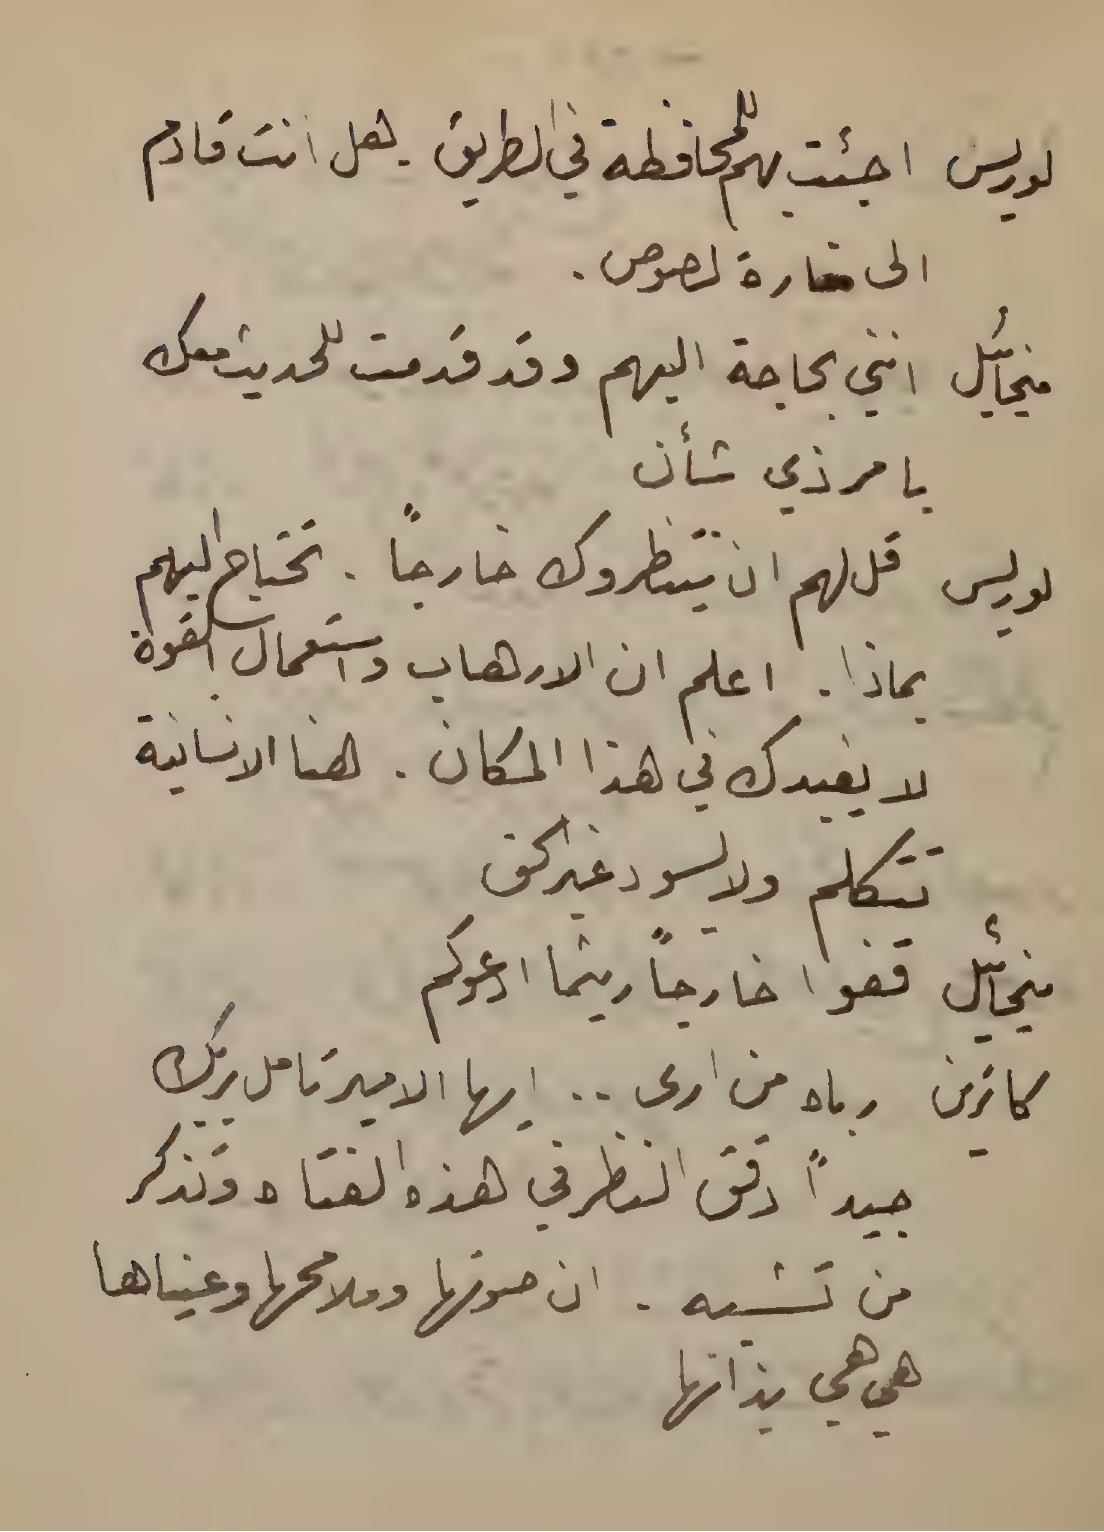 لوريس اجئت بهم للمحافظة في الطريق. هل انت قادم
الى مغارة لصوص.
ميخائيل انني بحاجة اليهم وقد قدمت للحديث معك
بامر ذي شأن
لوريس قل لهم ان ينتظروك خارجاً. تحتاج اليهم
بماذا. اعلم ان الارهاب واستعمال القوة
لا يفيدك في هذا المكان. هنا الانسانية
تتكلم ولا يسود غير الحق
ميخائيل قفوا خارجاً ريثما ادعوكم
كاترين رباه من ارى.. ايها الامير تامل بربك
جيداً دقق النظر في هذه الفتاه وتذكر
من تشبه. ان صوتها وملامحها وعيناها
هي هي بذاتها